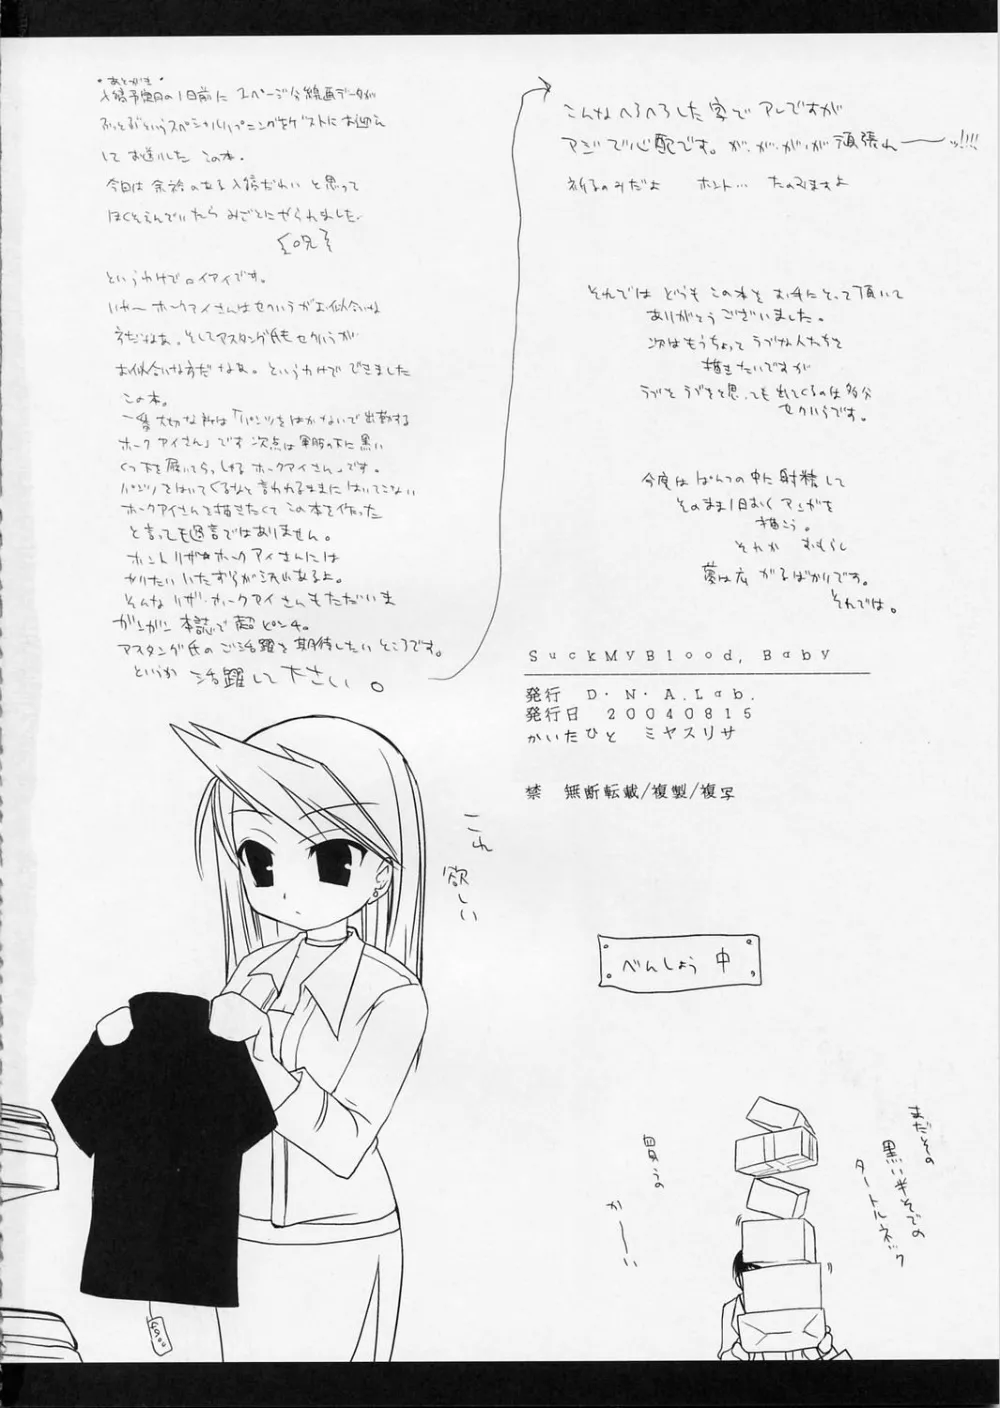 *あとがき*
入稿予定日の1日前に 2ページ分線画データが
ぶっとぶというスペシャルハプニングをゲストにお迎え
して お送りした この本。
今回は 余裕のある入稿だわい と思って
ほくそえんでいたら みごとにやられました。
呪
というわけでロイアイです。
いや〜 ホークアイさんはセクハラがお似合いな
方だなぁ。そしてマスタング氏もセクハラが
お似合いな方だ なぁ。というわけで できました
この本。
一番大切な所は「パンツをはかないで出勤する
ホークアイさん」です 次点は軍服の下に黒い
くつ下を履いてらっしゃるホークアイさん」です。
パンツをはいてくるなと言われるままにはいてこない
ホークアイさんを描きたくて この本を作った
と言っても過言ではありません。
ホントリザ・ホークアイさんには
やりたい いたずらが沢山あるよ。
そんな リザ・ホークアイさんもただいま
ガンガン 本誌で 超ピンチ。
マスタング氏の ご活躍を 期待したい ところです。
というか 活躍して下さい。
こんなへろへろした字で アレですが
マジで心配です。が、が、が、が 頑張れ――ッ!!!!
祈るのみだよ ホント… たのみますよ
それでは どうも この本を お手にとって頂いて
ありがとうございました。
次はもうちょって ラブな人たちを
描きたいですが
ラブを ラブをと思っても 出てくるのは多分
セクハらです。
今度は ぱんつの中に射精して
そのまま1日おくマンガを
描こう。
それか おもらし
夢は広 がるばかりです。
それでは。
SuckMyBlood, Baby
発行 D・N・A.Lab.
発行日 20040815
かいたひと ミヤスリサ
禁 無断転載/複製/複写
これ
欲しい
べんしょう 中
まだその
黒い半そでの
タートルネック
買うの
か――い